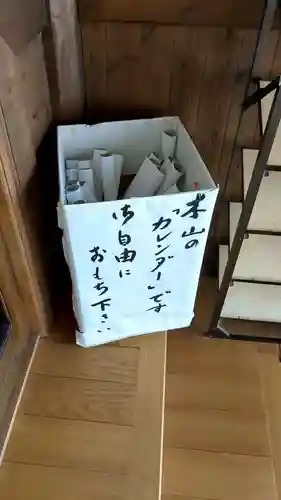 木山の
「カレンダー」です
御自由に
おもち下さい